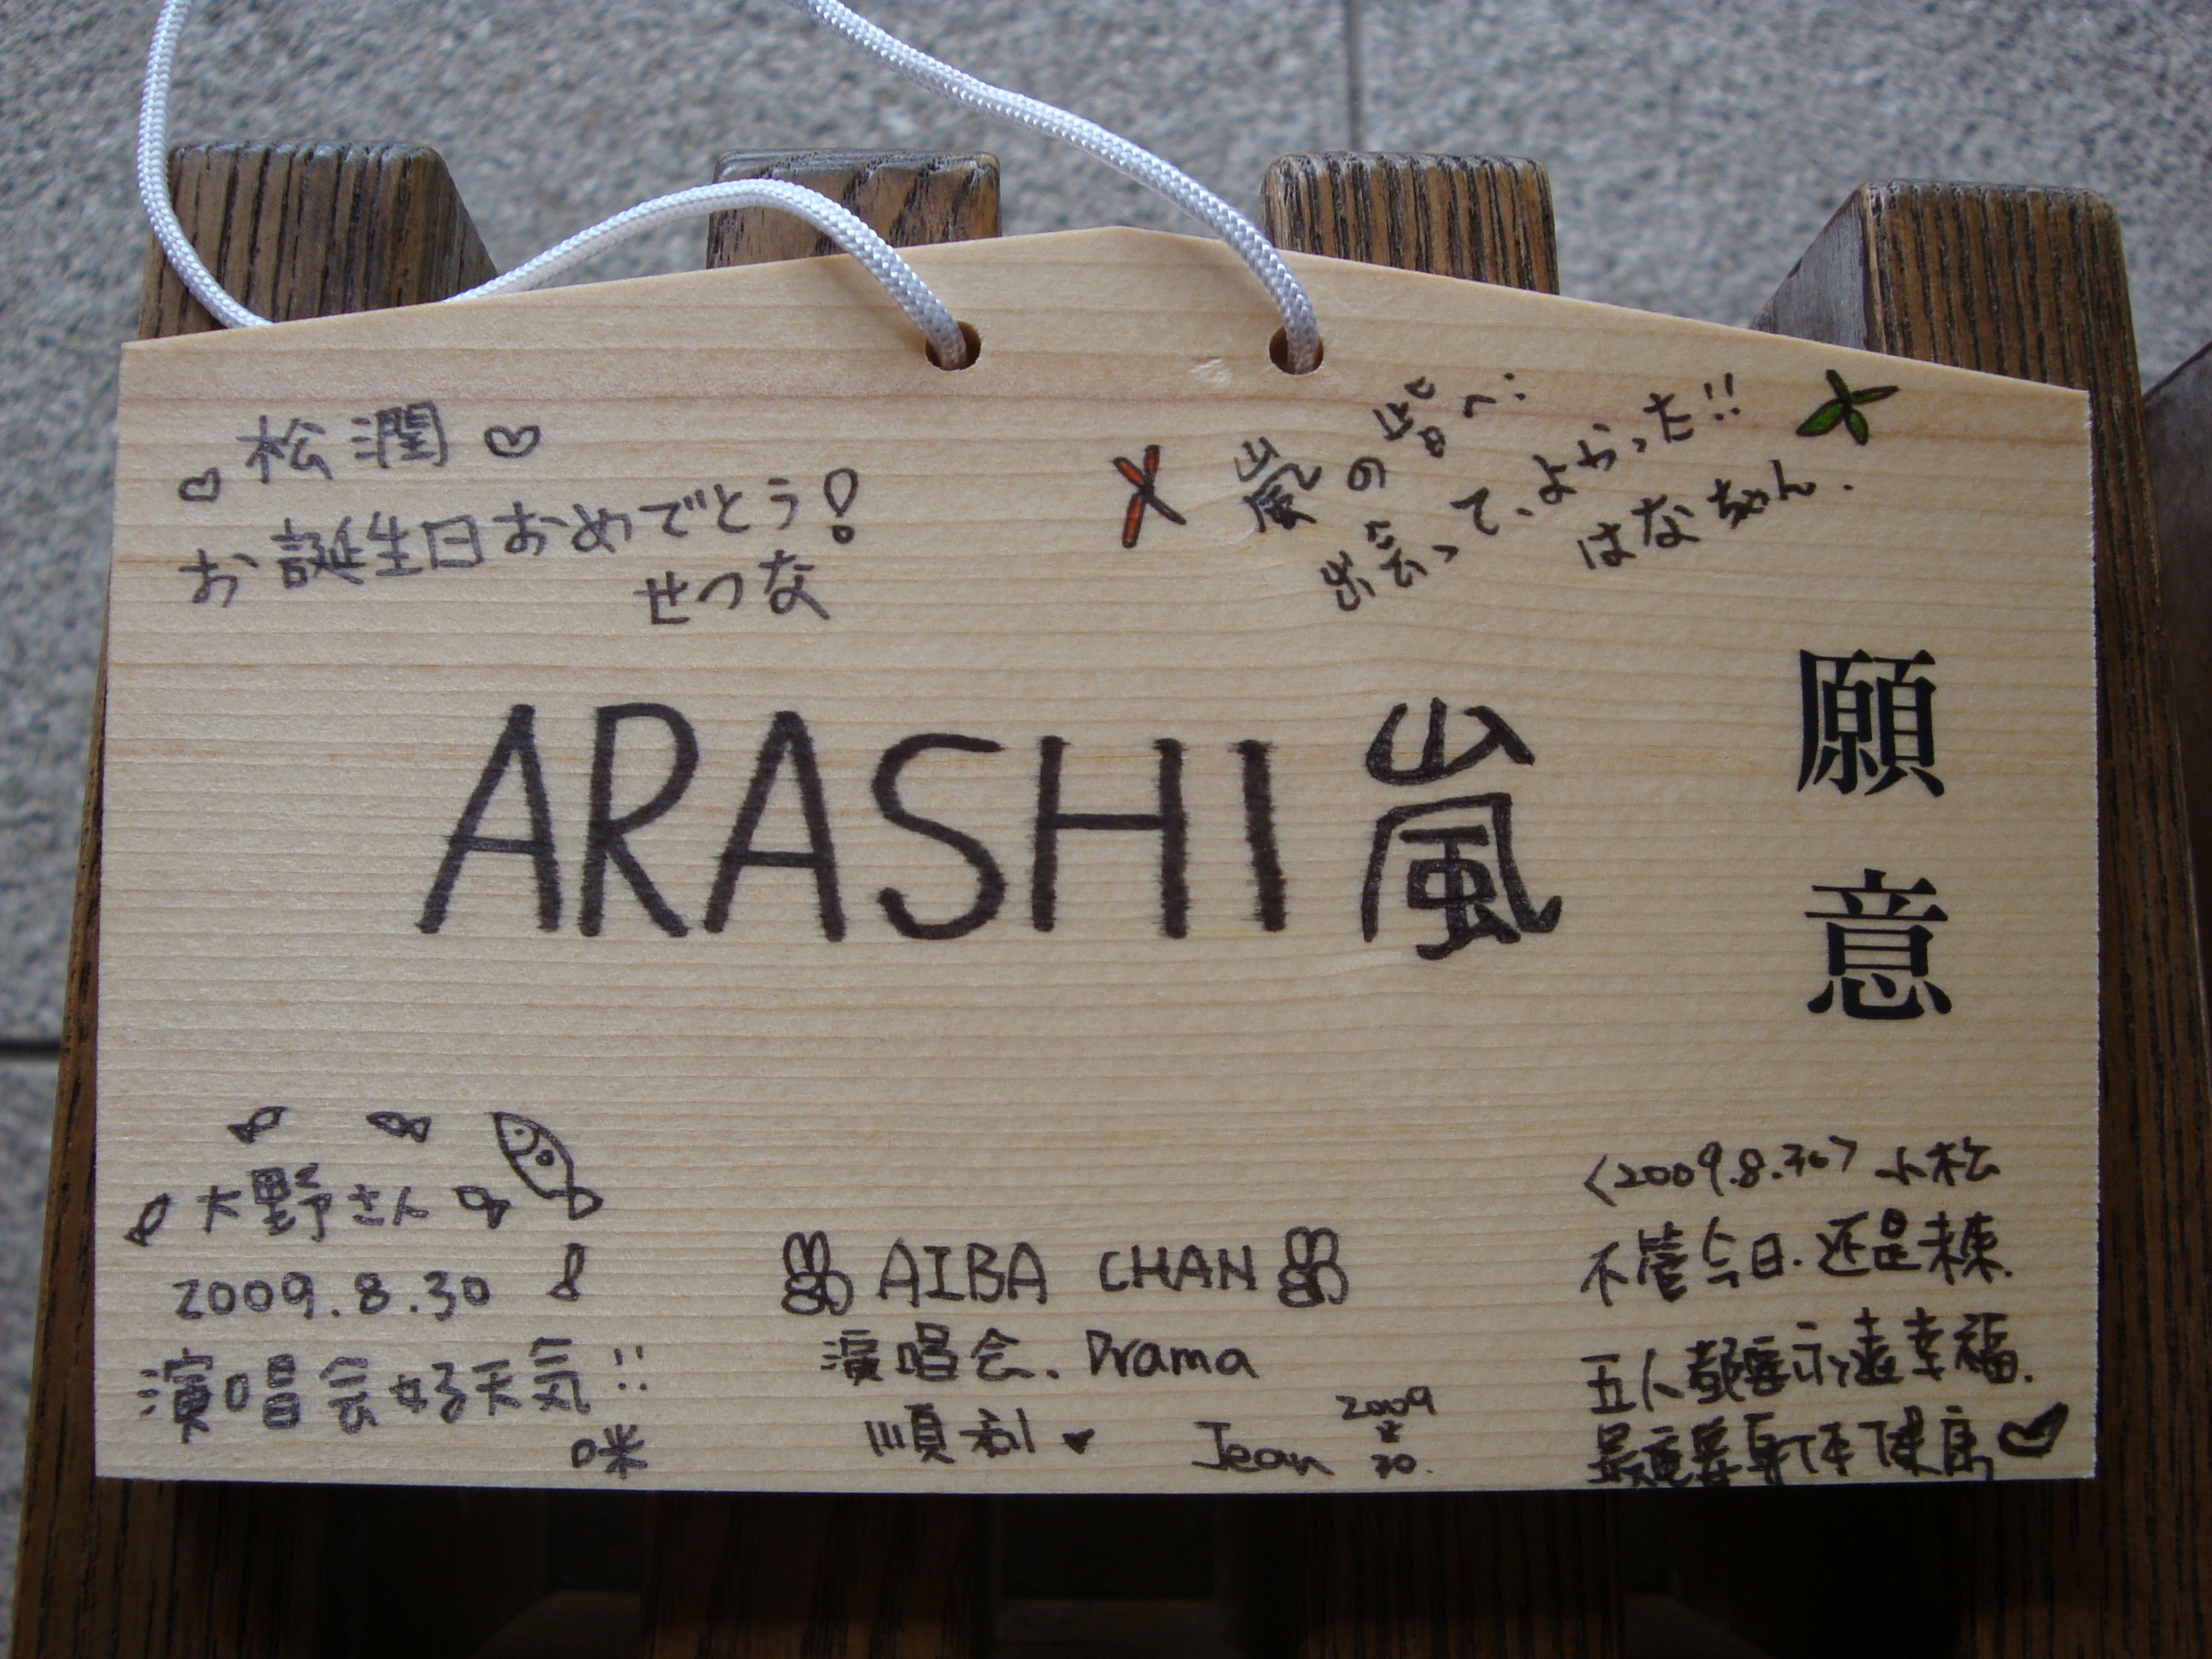 松潤
お誕生日おめでとう!
せつな
嵐の皆へ:
出会って、よかった!!
はなちゃん.
ARASHI 嵐
願意
大野さん
2009.8.30
演唱会好天気!!
咪
AIBA CHAN
演唱会、Drama
順利
Jean 2009
30.
<2009.8.30> 小松
不管今日.还是未来.
五人都要永遠幸福.
最重要身体健康